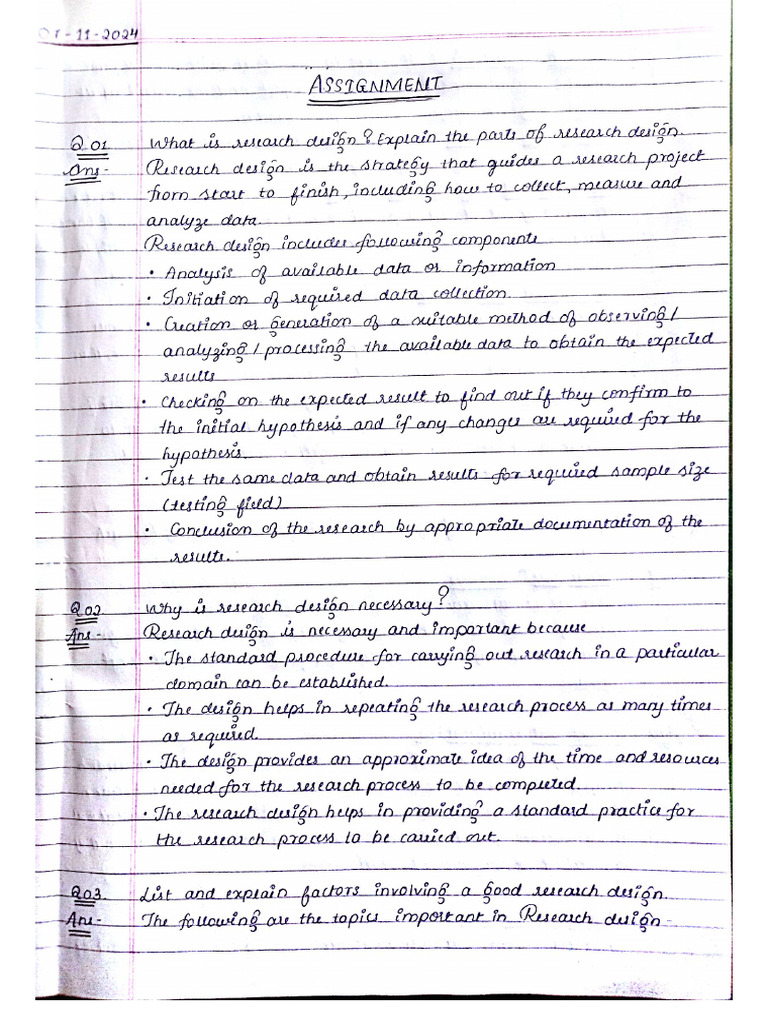 01-11-2024
ASSIGNMENT
Q.01 What is research design? Explain the parts of research design.
Ans- Research design is the strategy that guides a research project
from start to finish, including how to collect, measure and
analyze data.
Research design includes following components
• Analysis of available data or information
• Initiation of required data collection.
• Creation or generation of a suitable method of observing/
analyzing/processing the available data to obtain the expected
results
• Checking on the expected result to find out if they confirm to
the initial hypothesis and if any changes are required for the
hypothesis.
• Test the same data and obtain results for required sample size
(testing field)
• Conclusion of the research by appropriate documentation of the
results.
Q.02. Why is research design necessary?
Ans- Research design is necessary and important because
• The standard procedure for carrying out research in a particular
domain can be established.
• The design helps in repeating the research process as many times
as required.
• The design provides an approximate idea of the time and resources
needed for the research process to be completed.
• The research design helps in providing a standard practice for
the research process to be carried out.
Q03. List and explain factors involving a good research design.
Ans- The following are the topics important in Research design-